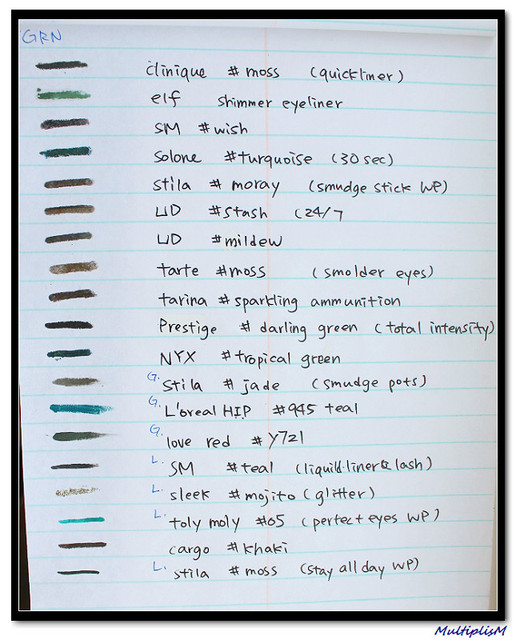 GRN
clinique #moss (quickliner)
elf shimmer eyeliner
SM #wish
Solone #turquoise (30sec)
stila # moray (smudge stick WP)
UD #stash (24/7
UD #mildew
tarte #moss (smolder eyes)
tarina #sparkling ammunition
Prestige # darling green (total intensity)
NYX #tropical green
G. Stila # jade (smudge pots)
G. L'oreal HIP #945 teal
G. love red #Y721
L. SM #teal (liquid liner & lash)
L. sleek #mojito (glitter)
L. toly moly #05 (perfect eyes WP)
cargo #khaki
L. stila #moss (stay all day WP)
MultiplisM